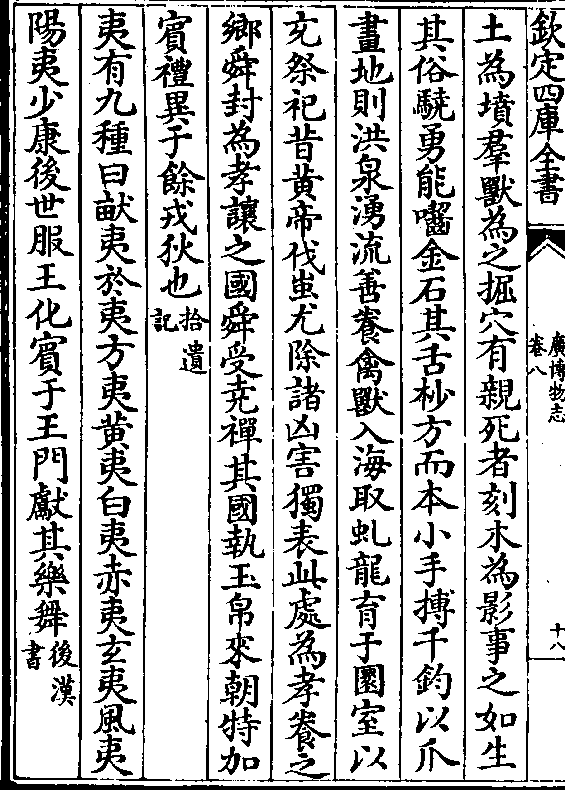 欽定四庫全書
廣博物志
卷八
十八
土為墳羣獸為之掘穴有親死者刻木為影事之如生
其俗驍勇能嚙金石其舌杪方而本小手搏千鈞以爪
畫地則洪泉湧流善養禽獸入海取虬龍育于圜室以
充祭祀昔黃帝伐蚩尤除諸凶害獨表此處為孝養之
鄉舜封為孝讓之國舜受堯禪其國執玉帛來朝特加
賓禮異于餘戎狄也拾遺記
夷有九種曰畎夷於夷方夷黃夷白夷赤夷玄夷風夷
陽夷少康後世服王化賓于王門獻其樂舞後漢書